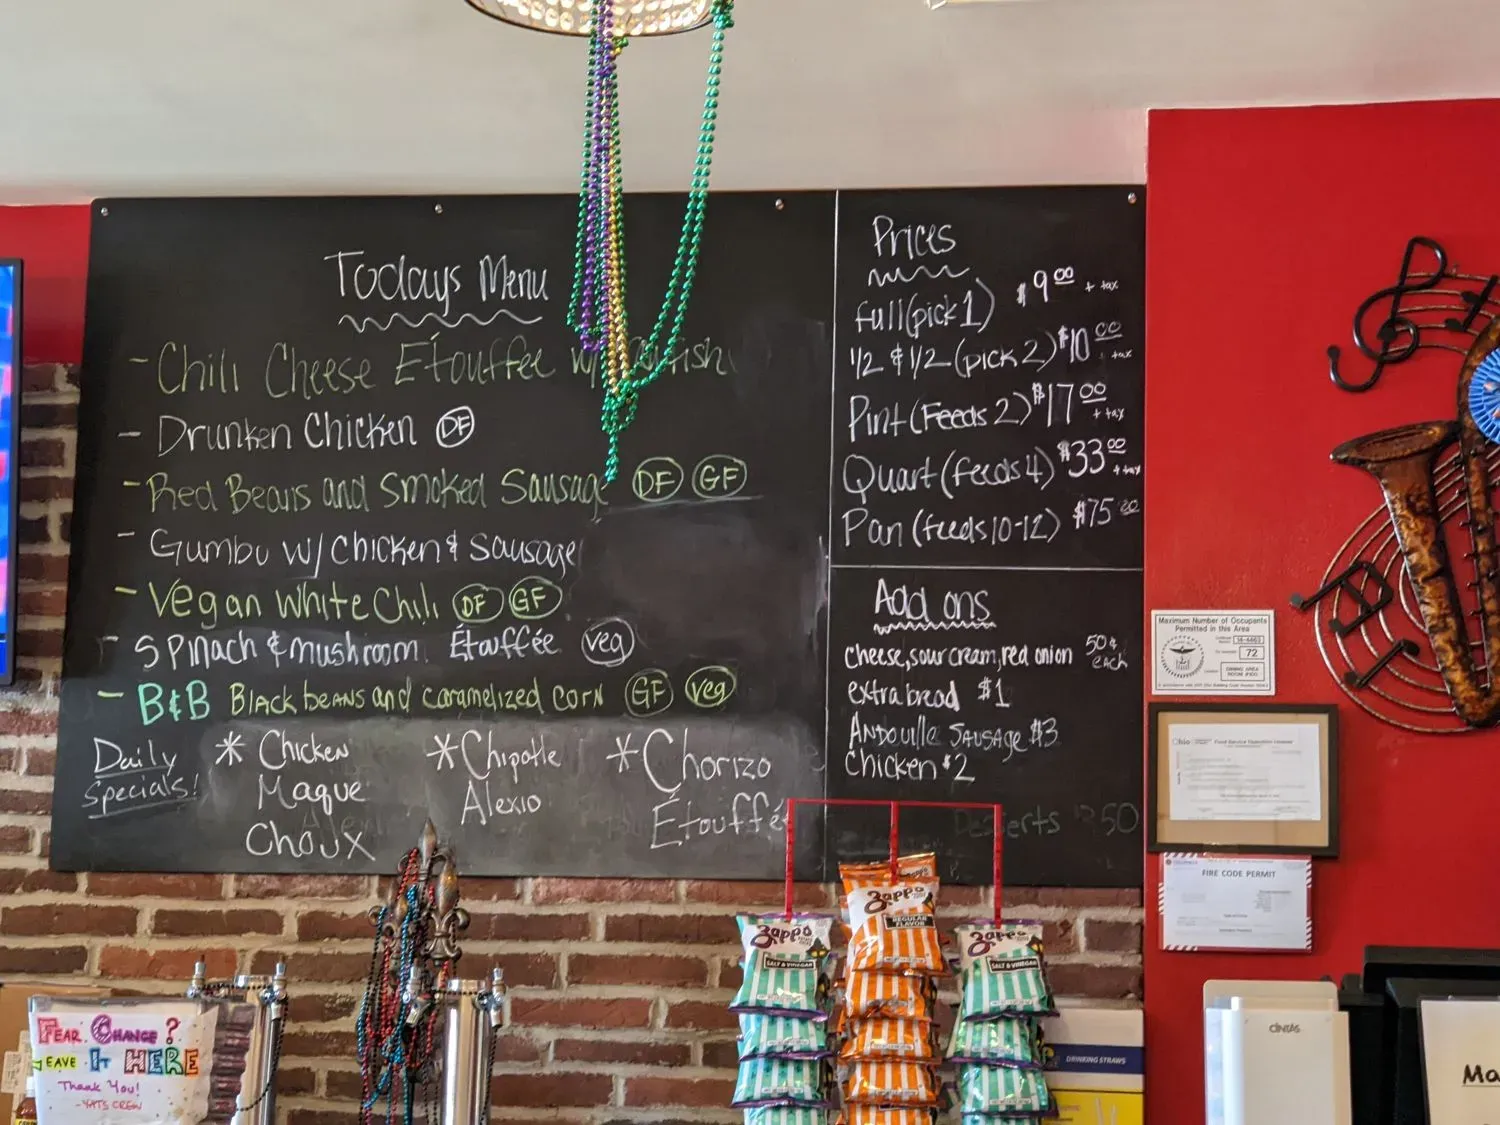 Todays Menu
- Chili Cheese Étouffee w/
- Drunken Chicken DF
- Red Beans and Smoked Sausage DF GF
- Gumbo w/ Chicken & Sausage
- Vegan White Chili DF GF
- Spinach & Mushroom Étouffée veg
- B&B Black beans and caramelized corn GF veg
Daily
Specials!
* Chicken
Maque
Choux
* Chipotle
Alexio
* Chorizo
Étouffée
Prices
full (pick 1) $9.00 + tax
1/2 & 1/2 (pick 2) $10.00 + tax
Pint (Feeds 2) $17.00 + tax
Quart (feeds 4) $33.00 + tax
Pan (feeds 10-12) $75.00
Add ons
cheese, sour cream, red onion 50¢ each
extra bread $1
Andouille Sausage $3
Chicken $2
Desserts
Maximum Number of Occupants
Permitted in this Area
72
Ohio
Food Service Operation License
FIRE CODE PERMIT
Zapp's
SALT & VINEGAR
Zapp's
REGULAR
FLAVOR
Zapp's
SALT & VINEGAR
FEAR CHANGE?
LEAVE IT HERE
Thank You!
-YATS CREW
DRINKING STRAWS
CINTAS
Ma